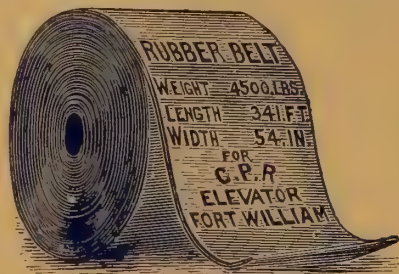 RUBBER BELT
WEIGHT 4500.LBS.
LENGTH 341.FT
WIDTH 54.IN.
FOR
C.P.R
ELEVATOR
FORT WILLIAM